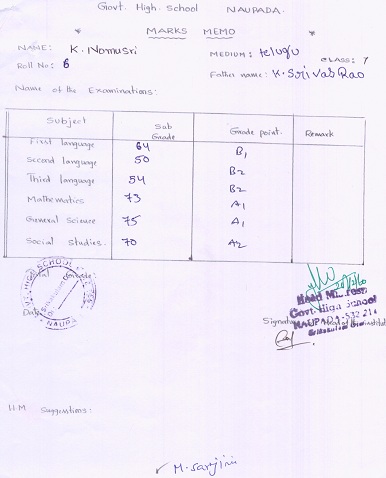 Govt. High School NAUPADA.
MARKS MEMO
NAME: K. Nomusri MEDIUM: telugu CLASS: 7
Roll No: 6 Father name: K. Srivas Rao
Name of the Examinations:
Subject Sub Grade Grade point. Remark
First language 64 B1
Second language 50 B2
Third language 54 B2
Mathematics 73 A1
General Science 75 A1
Social studies. 70 A2
Head Govt. High School
NAUPADA-532 214
H.M Suggestions:
M. Sarojini